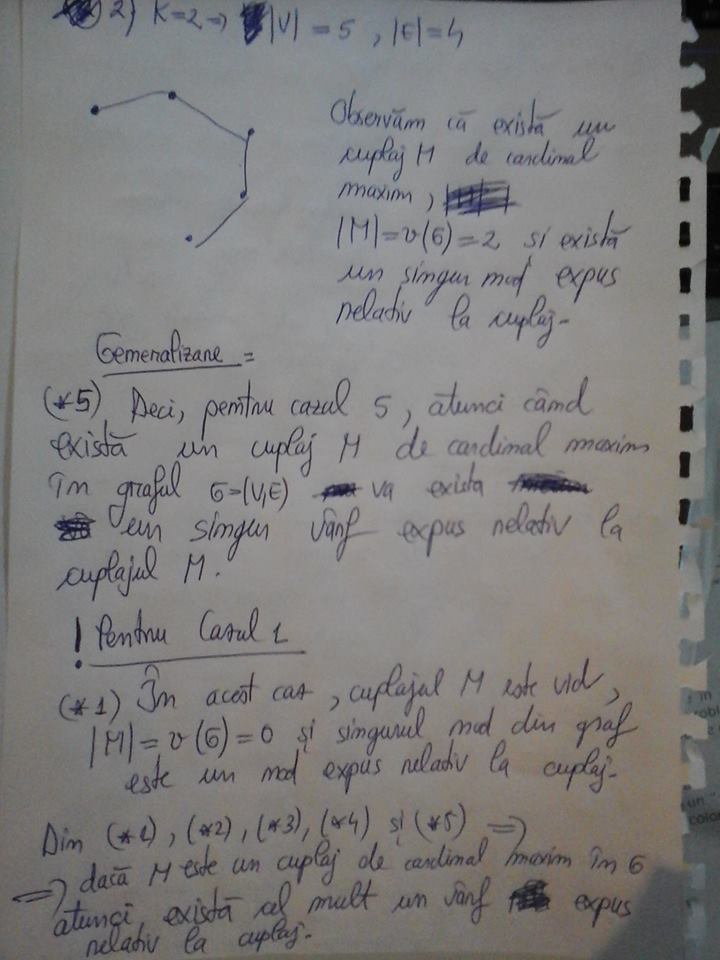 2) K=2 => |V| = 5 , |E|=4
Observăm că există un
cuplaj M de cardinal
maxim,
|M|=ν(G)=2 și există
un singur nod expus
relativ la cuplaj.
Generalizare =
(*5) Deci, pentru cazul 5, atunci când
există un cuplaj M de cardinal maxim
în graful G=(V,E) va exista
un singur vârf expus relativ la
cuplajul M.
! Pentru Cazul 1
(*1) În acest caz, cuplajul M este vid,
|M|=ν(G)=0 și singurul nod din graf
este un nod expus relativ la cuplaj.
Din (*1), (*2), (*3), (*4) și (*5) =>
=> dacă M este un cuplaj de cardinal maxim în G
atunci există cel mult un vârf expus
relativ la cuplaj.